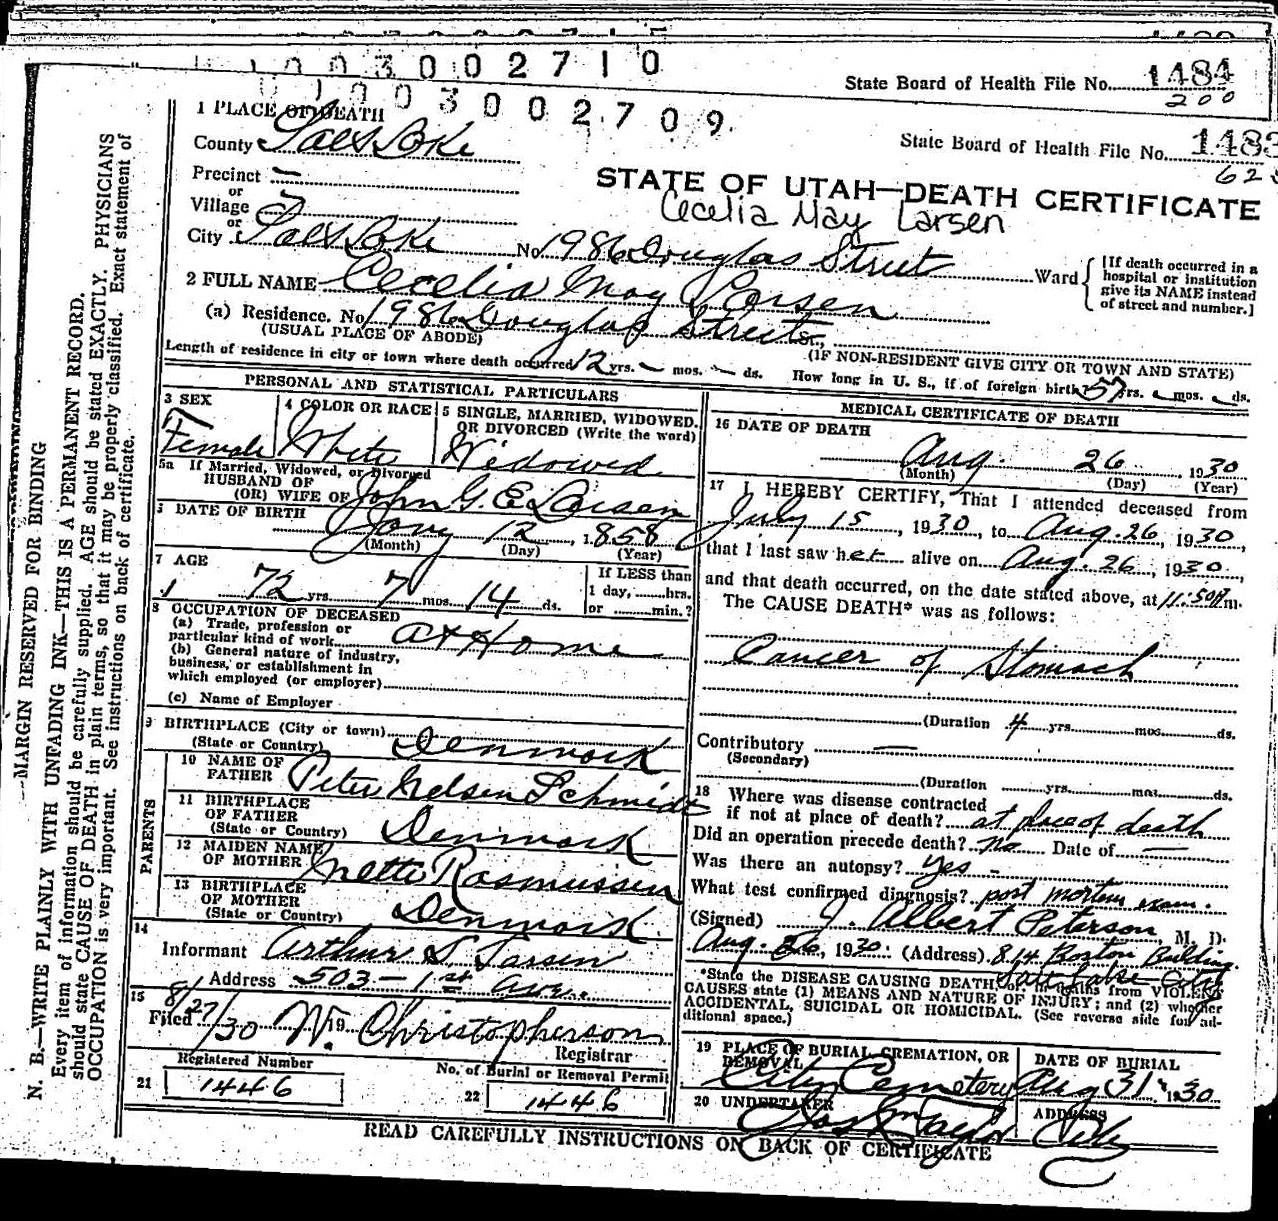 003002710
State Board of Health File No. 1484
200
0003002709
1 PLACE OF DEATH
State Board of Health File No. 1483
County Salt Lake
Precinct —
STATE OF UTAH—DEATH CERTIFICATE
or
Village
Cecelia May Larsen
or
City of Salt Lake No. 1986 Douglas Street Ward
[If death occurred in a hospital or institution give its NAME instead of street and number.]
2 FULL NAME Cecelia May Larsen
(a) Residence. No. 1986 Douglas Street
(USUAL PLACE OF ABODE)
(IF NON-RESIDENT GIVE CITY OR TOWN AND STATE)
Length of residence in city or town where death occurred 12 yrs. — mos. — ds. How long in U. S., if of foreign birth 57 yrs. — mos. — ds.
PERSONAL AND STATISTICAL PARTICULARS
3 SEX
Female
4 COLOR OR RACE
White
5 SINGLE, MARRIED, WIDOWED, OR DIVORCED (Write the word)
Widowed
5a If Married, Widowed, or Divorced
HUSBAND OF
(OR) WIFE OF John G. E. Larsen
6 DATE OF BIRTH
Jany 12, 1858
(Month) (Day) (Year)
7 AGE
72 yrs. 7 mos. 14 ds.
If LESS than
1 day, ......hrs.
or ......min.?
8 OCCUPATION OF DECEASED
(a) Trade, profession or
particular kind of work At Home
(b) General nature of industry,
business, or establishment in
which employed (or employer)
(c) Name of Employer
9 BIRTHPLACE (City or town)
(State or Country) Denmark
PARENTS
10 NAME OF
FATHER Peter Nelsen Schmidt
11 BIRTHPLACE
OF FATHER
(State or Country) Denmark
12 MAIDEN NAME
OF MOTHER Mette Rasmussen
13 BIRTHPLACE
OF MOTHER
(State or Country) Denmark
14
Informant Arthur S. Larsen
Address 503 - 1st Ave.
15
Filed 8/27/30 19 W. Christopherson
Registrar
Registered Number
21 1446
No. of Burial or Removal Permit
22 1446
MEDICAL CERTIFICATE OF DEATH
16 DATE OF DEATH
Aug. 26 1930
(Month) (Day) (Year)
17 I HEREBY CERTIFY, That I attended deceased from
July 15, 1930, to Aug. 26, 1930,
that I last saw her alive on Aug. 26, 1930,
and that death occurred, on the date stated above, at 11:50 m.
The CAUSE DEATH* was as follows:
Cancer of Stomach
(Duration 4 yrs. mos. ds.
Contributory —
(Secondary)
(Duration yrs. mos. ds.
18 Where was disease contracted
if not at place of death? at place of death
Did an operation precede death? no Date of —
Was there an autopsy? yes -
What test confirmed diagnosis? post mortem exam.
(Signed) J. Albert Peterson, M. D.
Aug. 26, 1930: (Address) 814 Boston Building
Salt Lake City
*State the DISEASE CAUSING DEATH, from VIOLENT
CAUSES state (1) MEANS AND NATURE OF INJURY; and (2) whether
ACCIDENTAL, SUICIDAL OR HOMICIDAL. (See reverse side for ad-
ditional space.)
19 PLACE OF BURIAL, CREMATION, OR
REMOVAL
City Cemetery
DATE OF BURIAL
Aug 31, 1930
20 UNDERTAKER
Jos Taylor
ADDRESS
City
READ CAREFULLY INSTRUCTIONS ON BACK OF CERTIFICATE
MARGIN RESERVED FOR BINDING
N. B.—WRITE PLAINLY WITH UNFADING INK—THIS IS A PERMANENT RECORD.
Every item of information should be carefully supplied. AGE should be stated EXACTLY. PHYSICIANS
should state CAUSE OF DEATH in plain terms, so that it may be properly classified. Exact statement of
OCCUPATION is very important. See instructions on back of certificate.